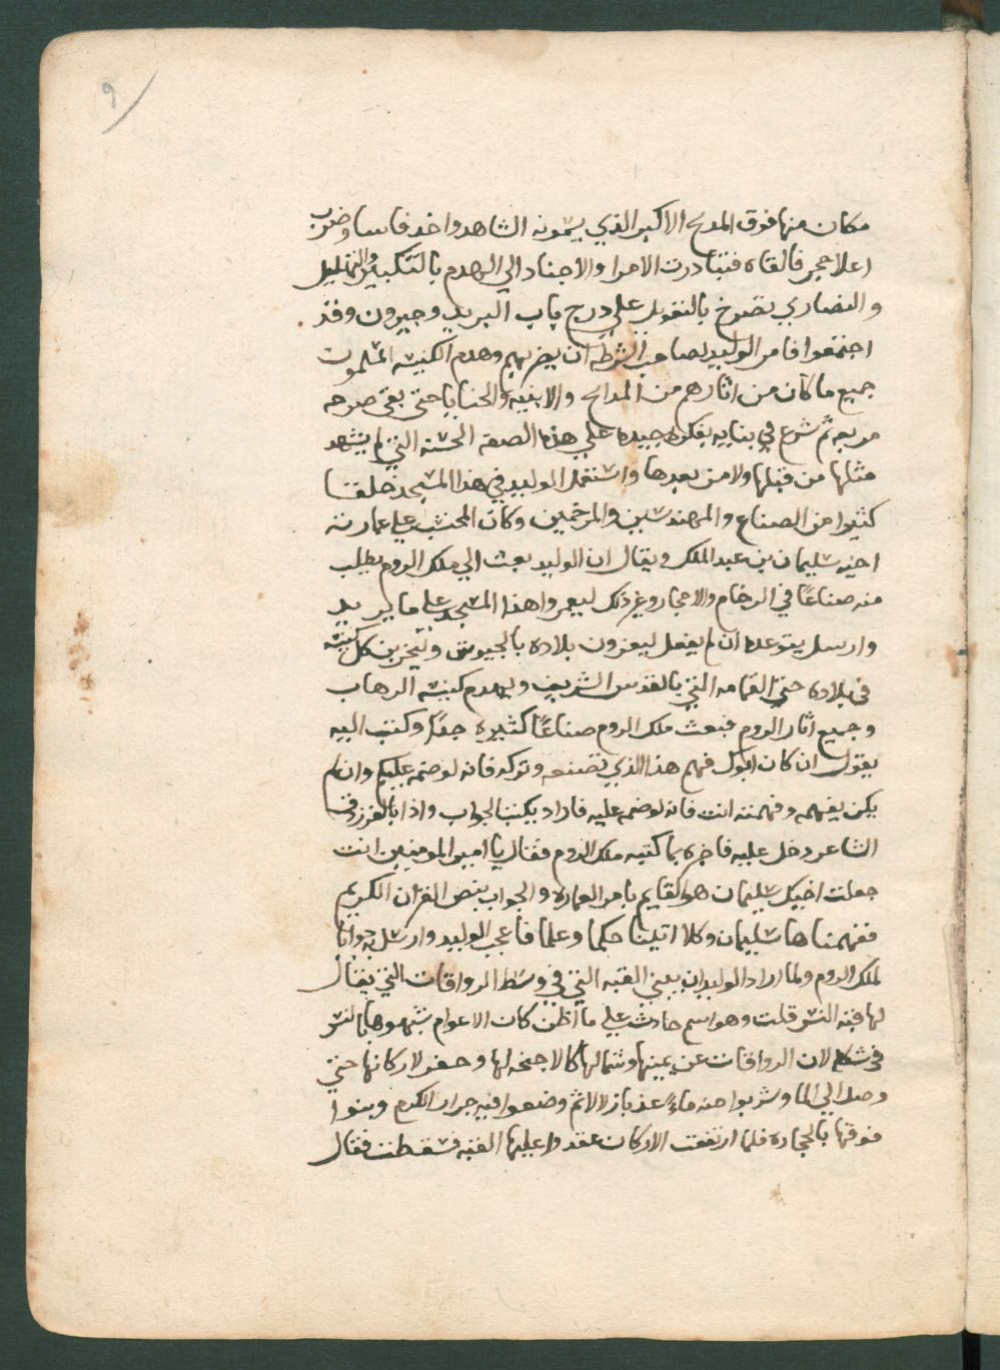 ٩
مكان منها فوق المدبح الاكبر الذي يسمونه الشاهد واخد فاسا وضرب
اعلا حجر فالقاه فتبادرت الامرا والاجناد الي الهدم بالتكبير والتهليل
والنصاري تصرخ بالنقولر علي درج باب البريد وجيرون وقد
اجتمعوا فامر الوليد لصاحب الشرطه ان يضربهم وهدم الكنيسه المسلمون
جميع ما كان من اثارهم من المدابح والابنيه والحنايا حتي بقي صرحه
مربعه ثم شرع في بنايه بفكره جيده علي هذه الصفه الحسنه التي لم يشهد
مثلها من قبلها ولا من بعدها واستعمل الوليد في هذا المسجد خلقا
كثيرا من الصناع والمهندسين والمرخمين وكان المحتسب علي عمارته
اخيه سليمان بن عبد الملك ويقال ان الوليد بعث الي ملك الروم يطلب
منه صناعًا في الرخام والاحجار وغير ذلك ليعمروا هذا المسجد علي ما يريد
وارسل يتوعده ان لم يفعل ليغزون بلاده بالجيوش وليخربن كل كنيسه
في بلاده حتي القمامه التي بالقدس الشريف ويهدم كنيسه الرهاب
وجميع اثار الروم فبعث ملك الروم صناعًا كثيره جدًا وكتب اليه
يقول ان كان ابوك فهم هذا الذي تصنعه وتركه فانه لوصمه عليك وان لم
يكن يفهمه وفهمته انت فانه لوصمه عليه فاراد يكتب الجواب واذا بالفرزدق
الشاعر دخل عليه فاخبره بما كتبه ملك الروم فقال يا امير المومنين انت
جعلت اخيك سليمان هو القايم بامر العماره والجواب بنص القران الكريم
ففهمناها سليمان وكلا اتينا حكما وعلما فاعجب الوليد وارسل به جوابا
لملك الروم ولما اراد الوليد ان يبني القبه التي في وسط الرواقات التي يقال
لها قبه النسر قلت وهو اسم حادث علي ما اظن كان الاعوام شبهوها بالنسر
في شكله لان الرواقات عن يمينها وشمالها كالاجنحه لها وحفر لاركانها حتي
وصل الي الما وشربوا منه ماءً عذبا زلالا ثم وضعوا فيه جرار الكرم وبنوا
فوقها بالحجاره فلما ارتفعت الاركان عقدوا عليها القبه فسقطت فقال